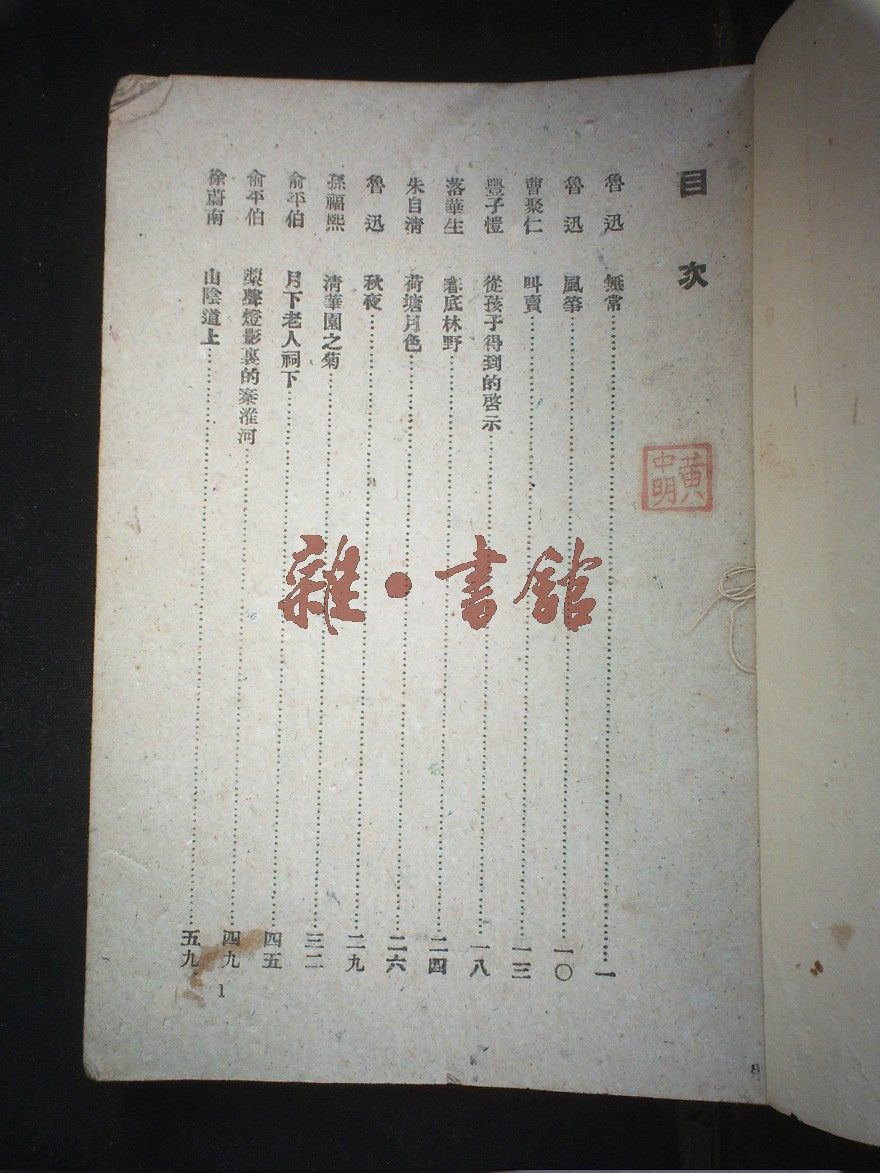 目次
魯迅 無常……一
魯迅 風筝……一〇
曹聚仁 叫賣……一三
豐子愷 從孩子得到的啓示……一八
落華生 春底林野……二四
朱自清 荷塘月色……二六
魯迅 秋夜……二九
孫福熙 清華園之菊……三二
俞平伯 月下老人祠下……四五
俞平伯 槳聲燈影裏的秦淮河……四九
徐蔚南 山陰道上……五九
1
黃中明
雜·書館